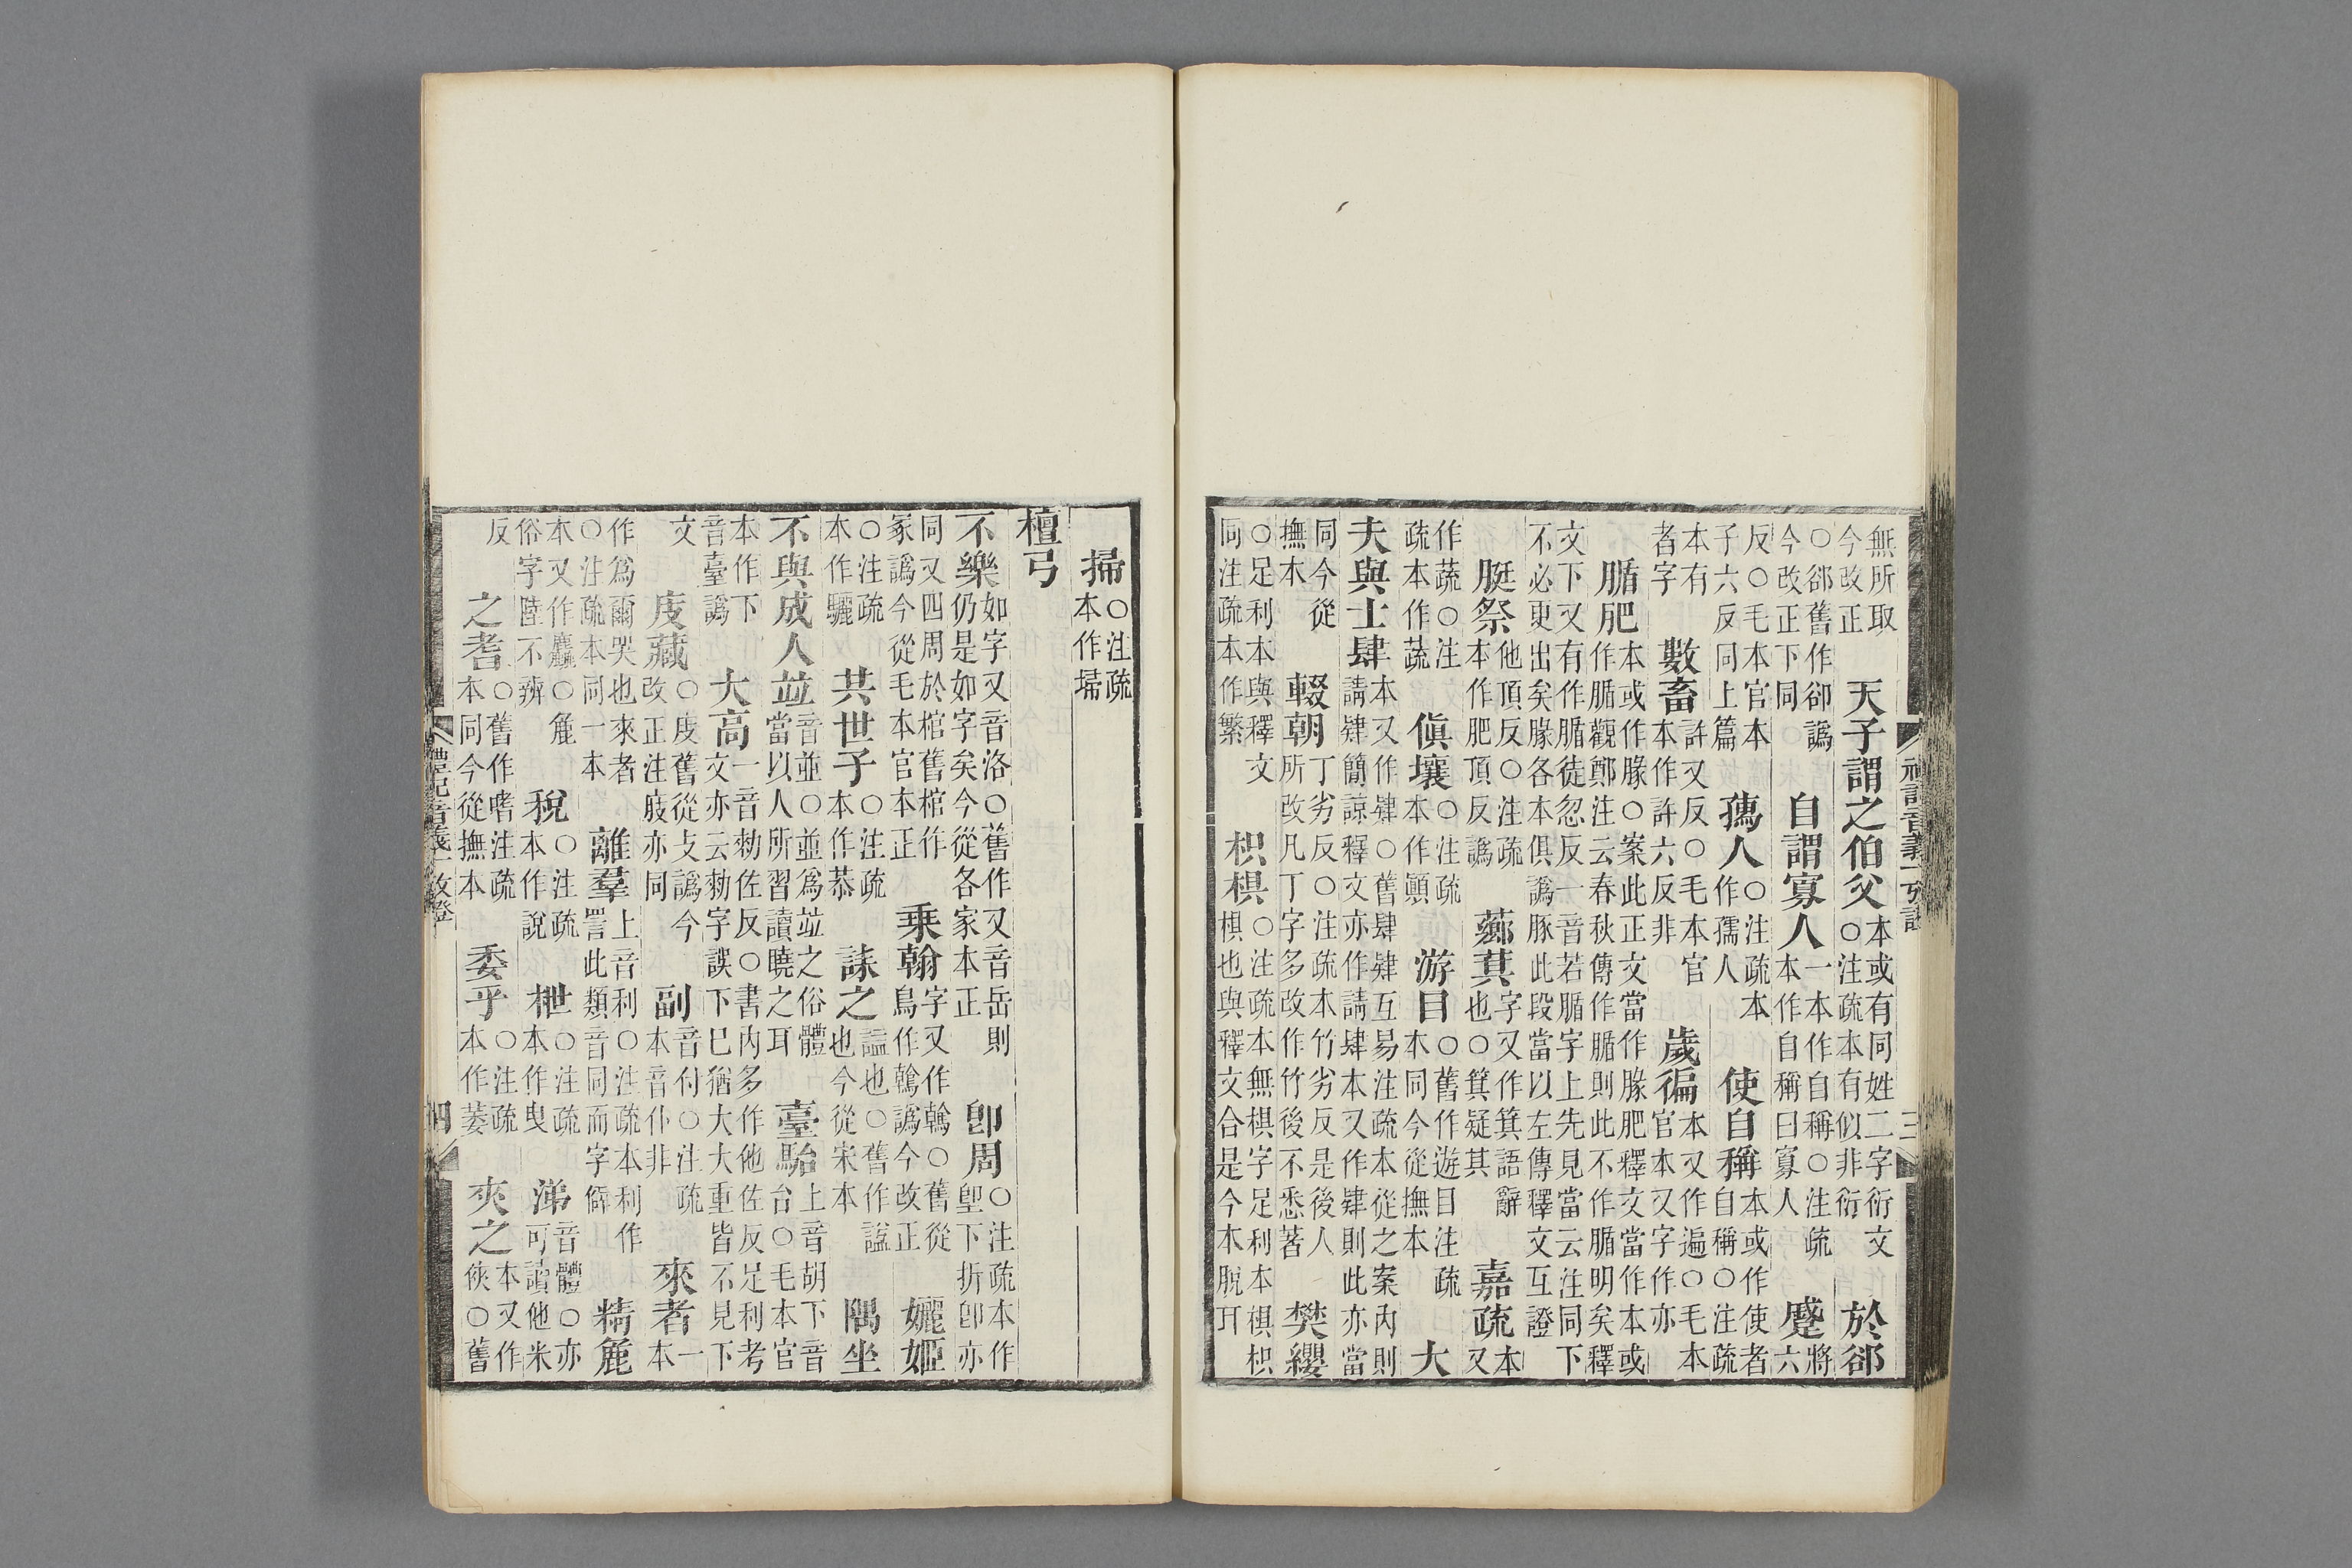 無所取今改正　天子謂之伯父本或有同姓二字衍文○注疏本有似非衍　於郤
○郤舊作卻譌今改正下同　自謂寡人一本作自稱○注疏本作自稱曰寡人　蹙將六
反○毛本官本子六反同上篇　孺人○注疏本作孺人　使自稱本或作使者自稱○注疏
本有者字　數畜許又反○毛本官本作許六反非　歲徧本又作遍○毛本官本又字作亦
腯肥本或作腞○案此正文當作腞肥釋文當作本或作腯觀鄭注云春秋傳作腯則此不作腯明矣釋
文下又有作腯徒忽反一音若腯字上先見當云注同下不必更出矣腞各本俱譌豚此段當以左傳釋文互證
脡祭他頂反○注疏本作肥頂反譌　薌萁字又作箕語辭也○箕疑其　嘉疏本又
作蔬○注疏本作蔬　傎壤○注疏本作顚　游目○舊作遊目注疏本同今從撫本　大
夫與士肄本又作肆○舊肆肄互易注疏本從之案內則請肄簡諒釋文亦作請肆本又作肄則此亦當
同今從撫本　輟朝丁劣反○注疏本竹劣反是後人所改凡丁字多改作竹後不悉著　樊纓
○足利本與釋文同注疏本作繁　枳椇○注疏本無椇字足利本椇枳椇也與釋文合是今本脫耳
禮記音義一攷證　三
掃○注疏本作埽
檀弓
不樂如字又音洛○舊作又音岳則仍是如字矣今從各家本正　卽周○注疏本作堲下折卽亦
同又四周於棺舊棺作冢譌今從毛本官本正　乗翰字又作鶾○舊從鳥作鶾譌今改正　孋姬
○注疏本作驪　共世子○注疏本作恭　誄之謚也○舊作諡也今從宋本　隅坐
不與成人並音並○並爲並之俗體當以人所習讀曉之耳　臺駘上音胡下音台○毛本官
本作下音臺譌　大高一音勑佐反○書內多作他佐反足利考文亦云勑字誤下巳猶大大重皆不見下
文　庋藏○庋舊從攴譌今改正注庪亦同　副音付○注疏本音仆非　來者一本
作爲爾哭也來者○注疏本同一本　離羣上音利○注疏本利作詈此類音同而字僻　精麄
本又作麤○麄俗字陸不辨　稅○注疏本作說　枻○注疏本作曳　涕音體○亦可讀他米
反　之耆○舊作嗜注疏本同今從撫本　委乎○注疏本作萎　夾之本又作俠○舊
禮記音義一攷證　四